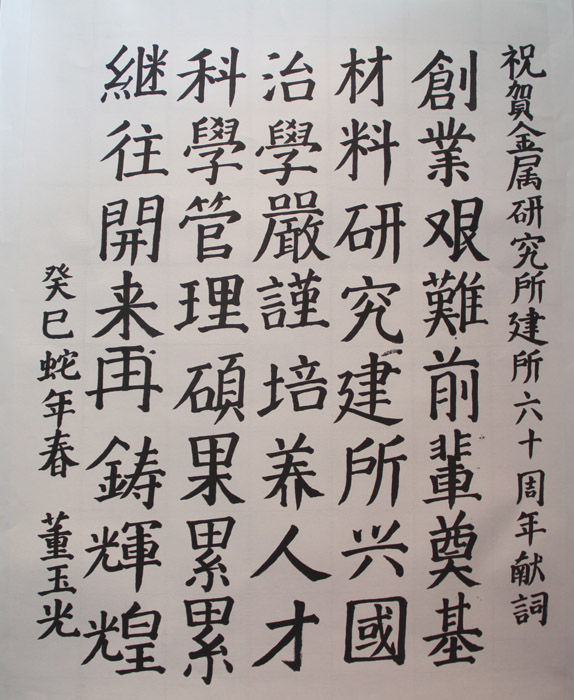 祝賀金属研究所建所六十周年献詞
創業艰難前輩奠基
材料研究建所兴國
治學嚴謹培养人才
科學管理碩果累累
継往開来再鋳輝煌
癸巳蛇年春 董玉光